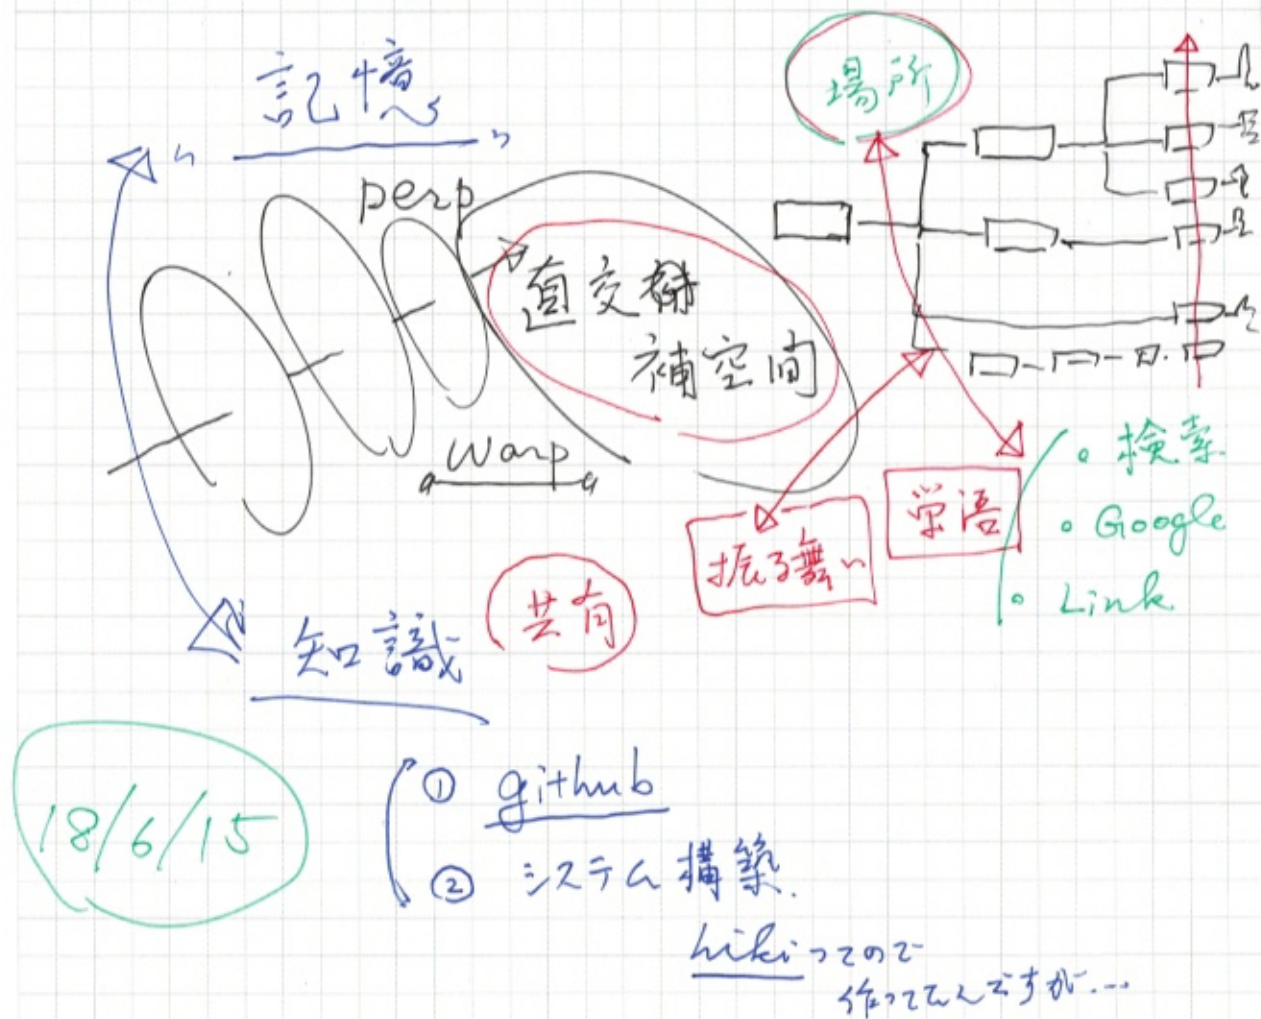 記憶
場所
perp
直交
補空間
warp
検索
Google
Link
学語
振る舞い
共有
知識
18/6/15
① github
② システム構築.
hikiってので
作ってんですが....